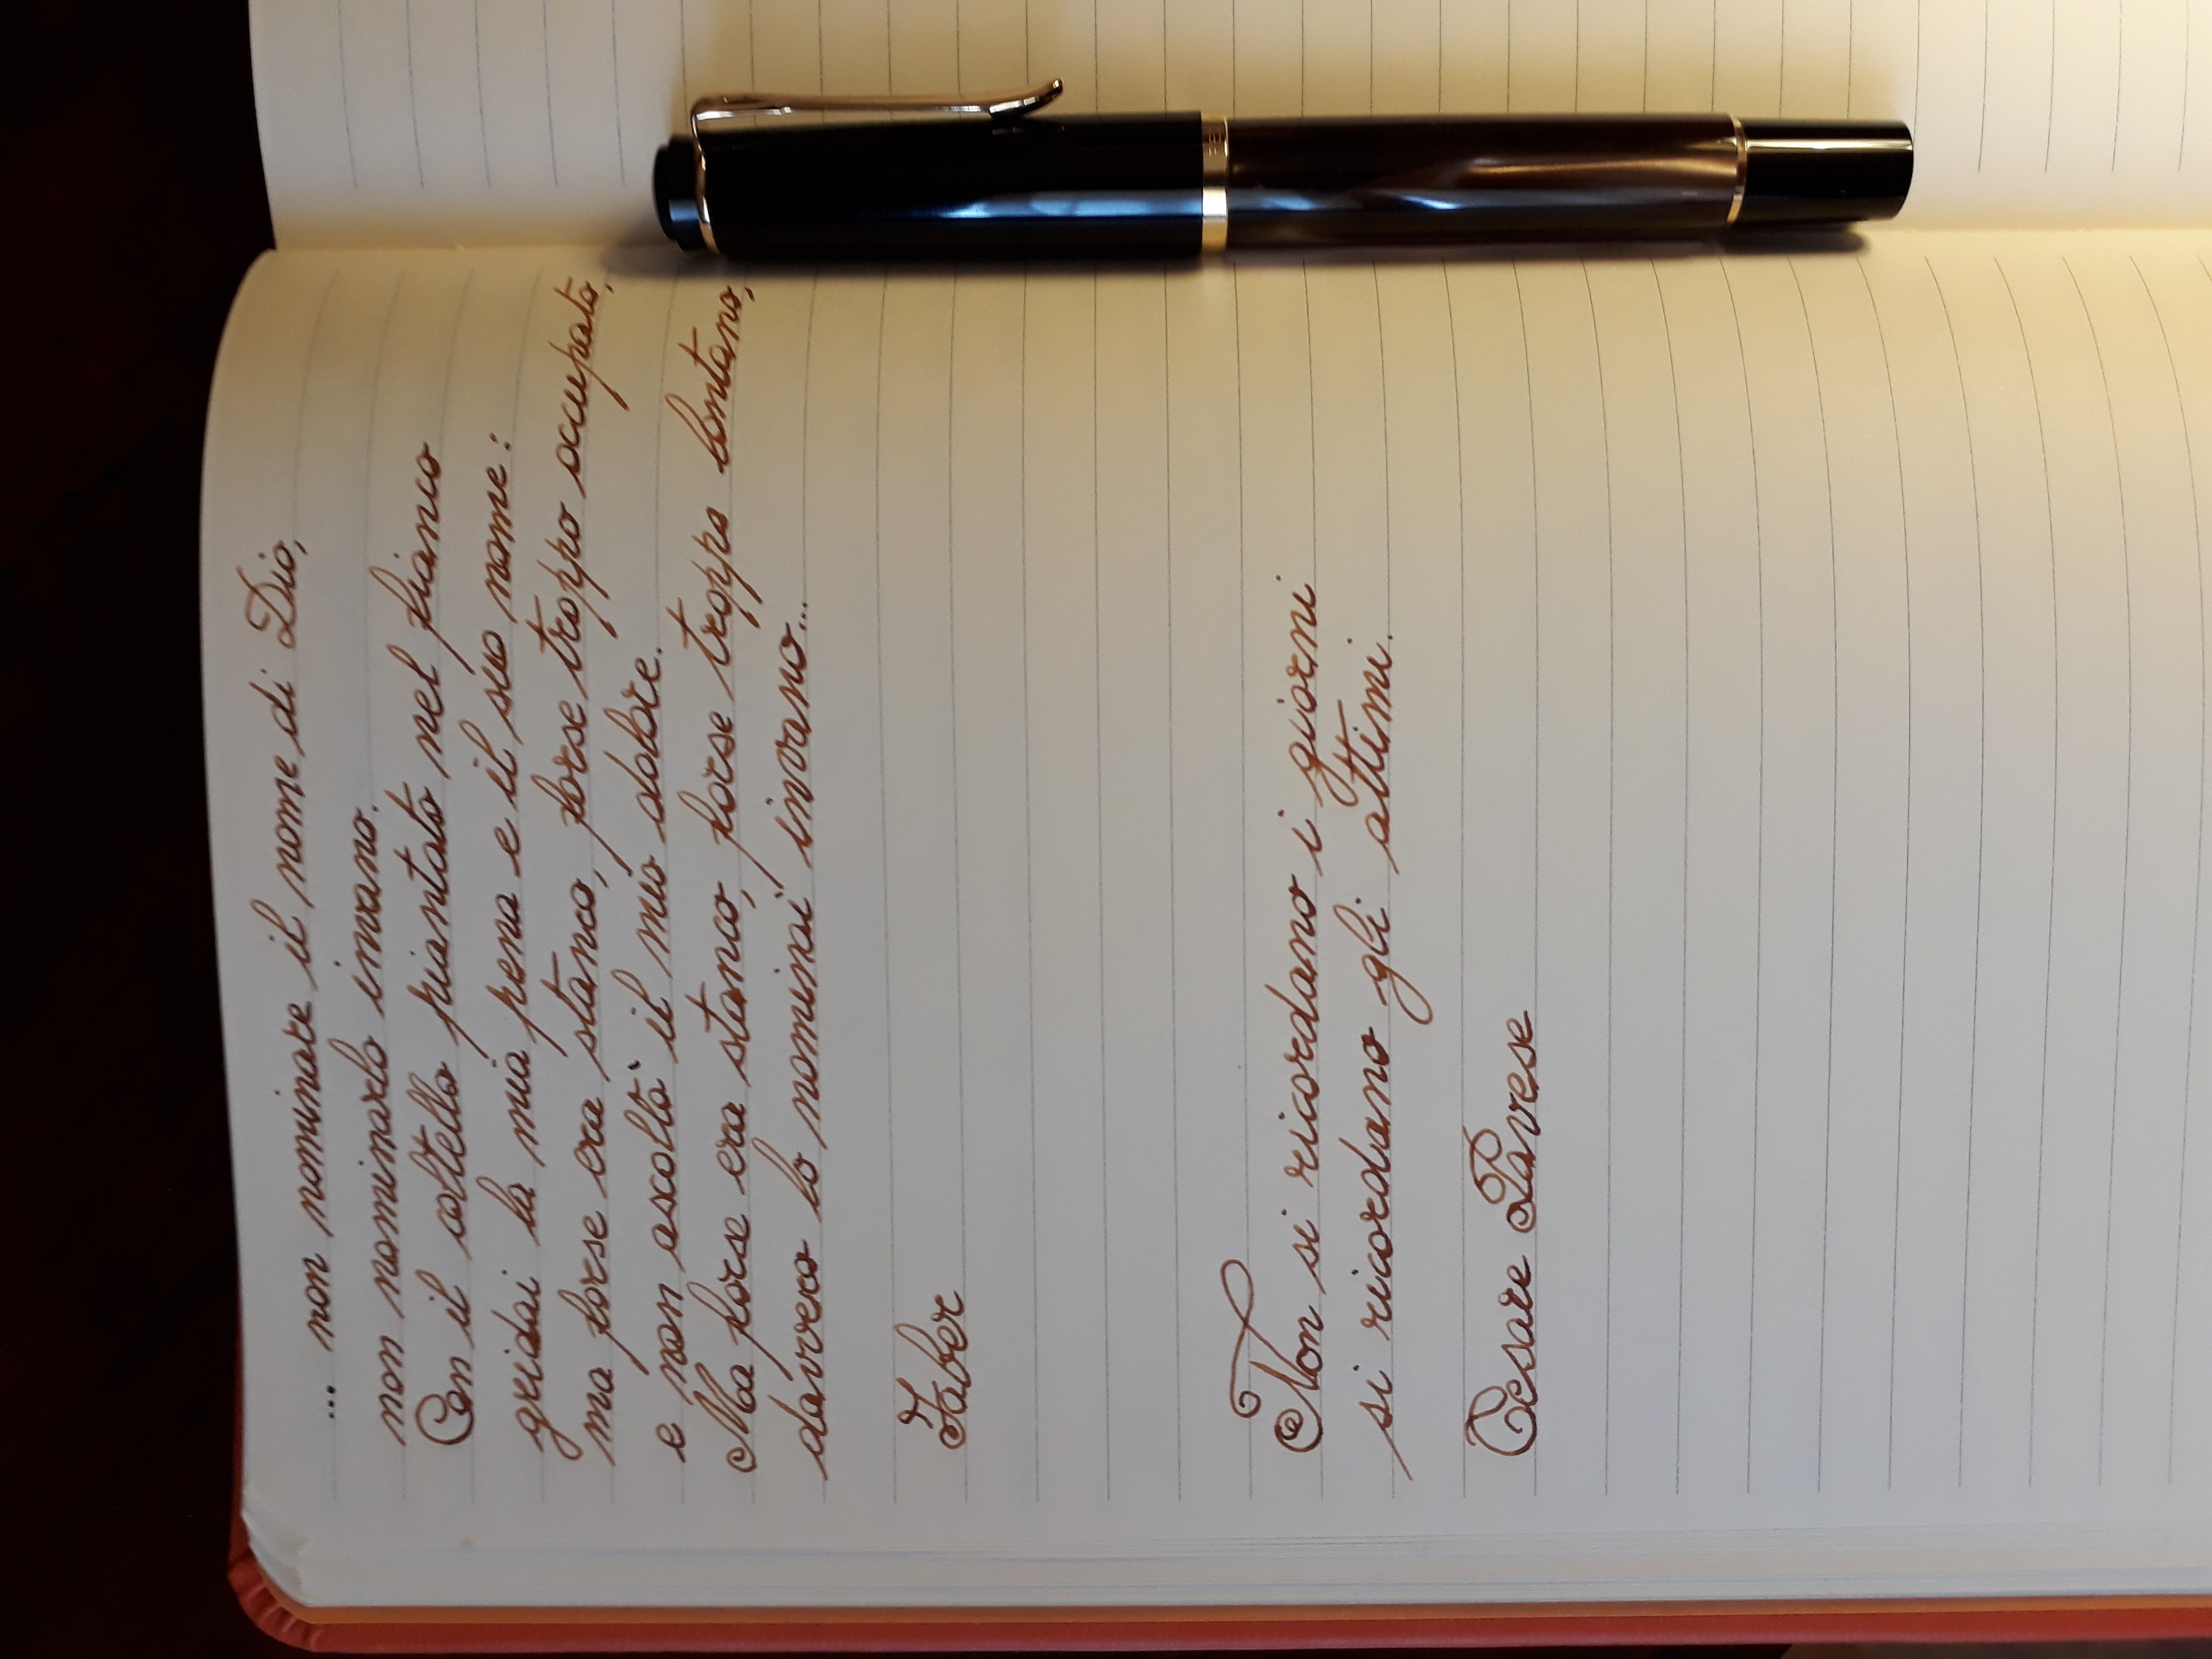 ... non nominare il nome di Dio,
non nominarlo invano.
Con il coltello piantato nel fianco
gridai la mia pena e il suo nome:
ma forse era stanco, forse troppo occupato,
e non ascoltò il mio dolore.
Ma forse era stanco, forse troppo lontano,
davvero lo nominai invano...
Faber
Non si ricordano i giorni
si ricordano gli attimi.
Cesare Pavese